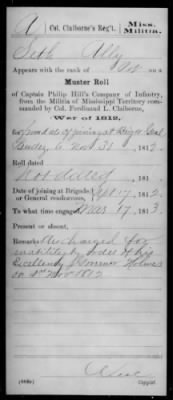 A | Col. Claiborne's Reg't. | Miss. Militia.
Seth Ally
Appears with the rank of
Muster Roll
of Captain Philip Hill's Company of Infantry,
from the Militia of Mississippi Territory com-
manded by Col. Ferdinand L. Claiborne,
War of 1812,
for
to Nov 30, 1812.
Roll dated
Not dated, 181
Date of joining at Brigade
or General rendezvous, Sept 17, 1812.
To what time engaged, Mar 17, 1813.
Present or absent,
Remarks: Discharged for
inability by order of his
Excellency Governor Holmes
on
Copyist.